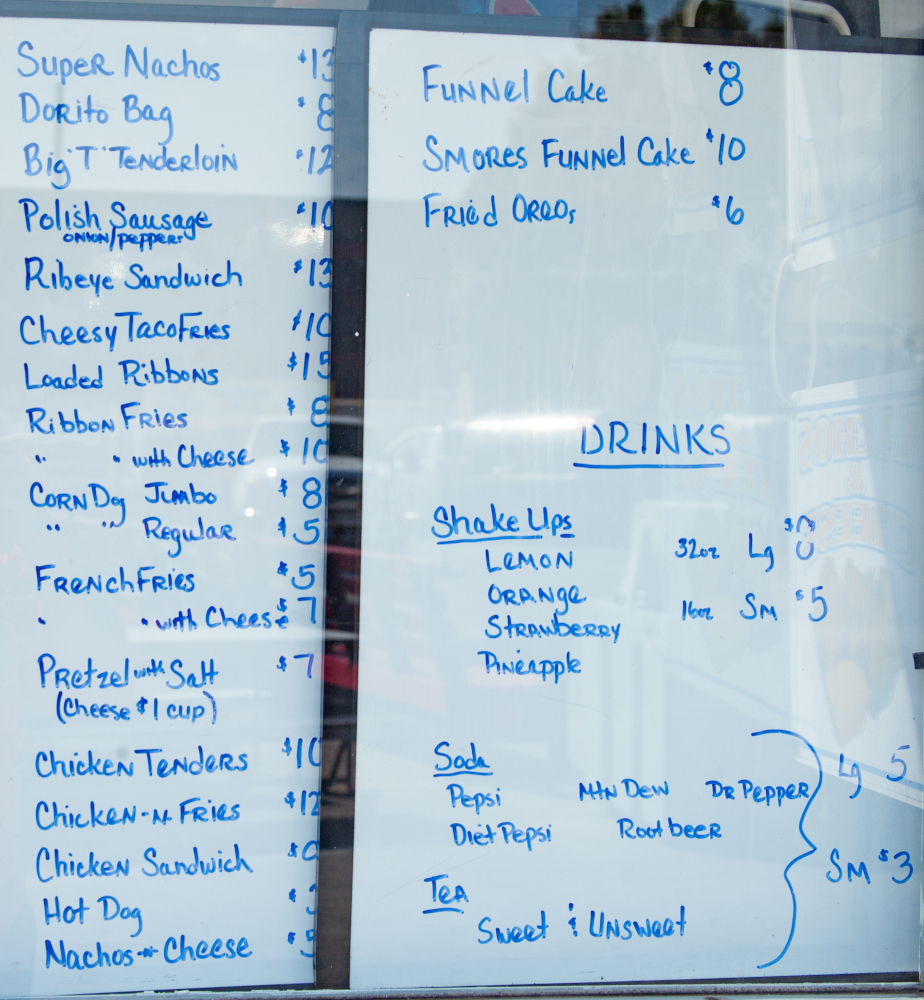 Super Nachos $13
Dorito Bag $8
Big "T" Tenderloin $12
Polish Sausage $10
onion/peppers
Ribeye Sandwich $13
Cheesy Taco Fries $10
Loaded Ribbons $15
Ribbon Fries $8
" " with Cheese $10
Corn Dog Jumbo $8
" " Regular $5
French Fries $5
" " with Cheese $7
Pretzel with Salt $7
(Cheese $1 cup)
Chicken Tenders $10
Chicken-n-Fries $12
Chicken Sandwich
Hot Dog
Nachos-n-Cheese
Funnel Cake $8
Smores Funnel Cake $10
Fried Oreos $6
DRINKS
Shake Ups
Lemon 32oz Lg
Orange
16oz Sm $5
Strawberry
Pineapple
Soda
Pepsi Mtn Dew Dr Pepper
Diet Pepsi Root beer
Lg 5
Sm $3
Tea
Sweet & Unsweet